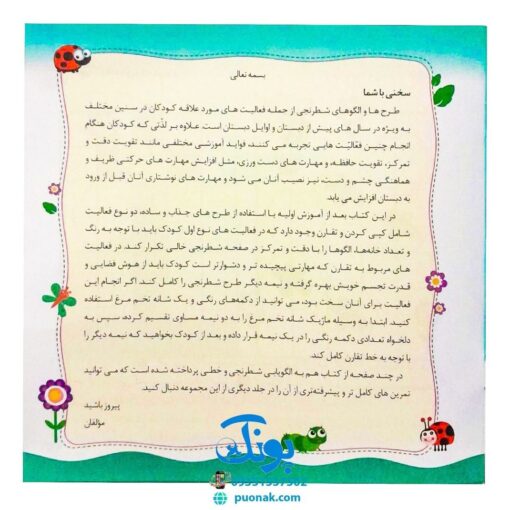 بسمه تعالی
سخنی با شما
طرح ها و الگوهای شطرنجی از جمله فعالیت های مورد علاقه کودکان در سنین مختلف
به ویژه در سال های پیش از دبستان و اوایل دبستان است. علاوه بر لذتی که کودکان هنگام
انجام چنین فعالیت هایی تجربه می کنند، فواید آموزشی مختلفی مانند تقویت دقت و
تمرکز، تقویت حافظه، و مهارت های دست ورزی، مثل افزایش مهارت های حرکتی ظریف و
هماهنگی چشم و دست، نیز نصیب آنان می شود و مهارت های نوشتاری آنان قبل از ورود
به دبستان افزایش می یابد.
در این کتاب بعد از آموزش اولیه با استفاده از طرح های جذاب و ساده، دو نوع فعالیت
شامل کپی کردن و تقارن وجود دارد که در فعالیت های نوع اول کودک باید با توجه به رنگ
و تعداد خانه‌ها، الگوها را با دقت و تمرکز در صفحه شطرنجی خالی تکرار کند. در فعالیت
های مربوط به تقارن که مهارتی پیچیده تر و دشوارتر است کودک باید از هوش فضایی و
قدرت تجسم خویش بهره گرفته و نیمه دیگر طرح شطرنجی را کامل کند. اگر انجام این
فعالیت برای آنان سخت بود، می توانید از دکمه‌های رنگی و یک شانه تخم مرغ استفاده
کنید. ابتدا به وسیله ماژیک شانه تخم مرغ را به دو نیمه مساوی تقسیم کرده، سپس به
دلخواه تعدادی دکمه رنگی را در یک نیمه قرار داده و بعد از کودک بخواهید که نیمه دیگر را
با توجه به خط تقارن کامل کند.
در چند صفحه از کتاب هم به الگویابی شطرنجی و خطی پرداخته شده است که می توانید
تمرین های کامل تر و پیشرفته‌تری از آن را در جلد دیگری از این مجموعه دنبال کنید.
پیروز باشید
مؤلفان
پونک
puonak.com